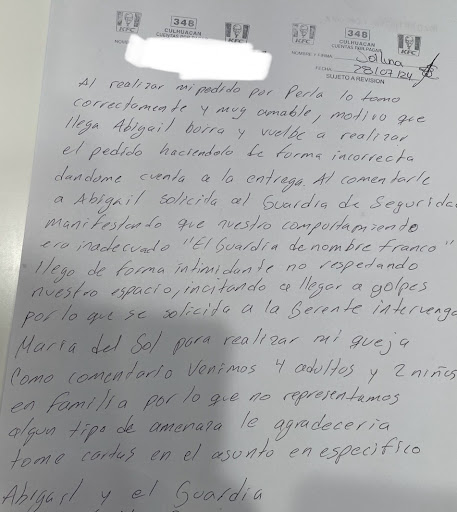 KFC
348
CULHUACAN
CUENTAS POR PAGAR
KFC
NOMB
KFC
348
CULHUACAN
CUENTAS POR PAGAR
KFC
NOMBRE Y FIRMA
FECHA 28/07/24
SUJETO A REVISION
Al realizar mi pedido por Perla lo tomo
correctamente y muy amable, motivo que
llega Abigail borra y vuelbe a realizar
el pedido haciendolo de forma incorrecta
dandome cuenta a la entrega. Al comentarle
a Abigail solicita al Guardia de Segurida
manifestando que nuestro comportamiento
era inadecuado "El Guardia de nombre Franco"
llego de forma intimidante no respetando
nuestro espacio, incitando a llegar a golpes
por lo que se solicita a la Gerente intervenga
Maria del Sol para realizar mi queja
Como comentario Venimos 4 adultos y 2 niños
en familia por lo que no representamos
algun tipo de amenaza le agradeceria
tome cartas en el asunto en especifico
Abigail y el Guardia